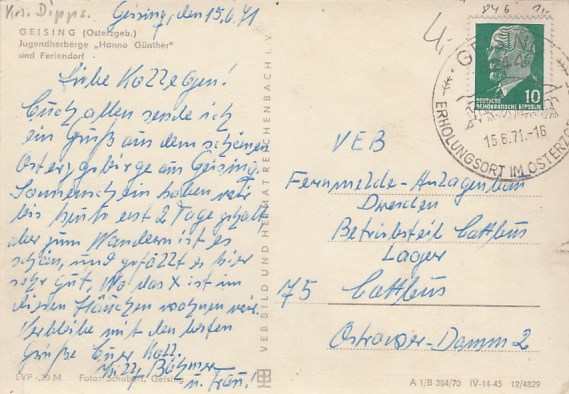 Krs. Dipps.
Geising, den 15.6.71
GEISING (Osterzgeb.)
Jugendherberge „Hanno Günther"
und Feriendorf
Liebe Kollegen!
Euch allen sende ich
ein Gruß aus dem schönen
Osterzgebirge aus Geising.
Sonnenschein haben wir
bis heute erst 2 Tage gehabt
aber zum Wandern ist es
schön, und gefällt es hier
sehr gut. Wo das X ist im
diesen Häuschen wohnen wir.
Verbleibe mit den besten
Grüße Euer Koll.
Willy Böhmer
u. Frau!
EVP -,20 M Foto: Schubert, Geising
VEB BILD UND HEIMAT REICHENBACH I. V.
GEISING
15.6.71.-16
ERHOLUNGSORT IM OSTERZ
DEUTSCHE
DEMOKRATISCHE REPUBLIK
10
VEB
Fernmelde-Anlagenbau
Dresden
Betriebsteil Cottbus
Lager
75 Cottbus
Ostrower-Damm 2
A 1/B 304/70 IV-14-45 12/4829